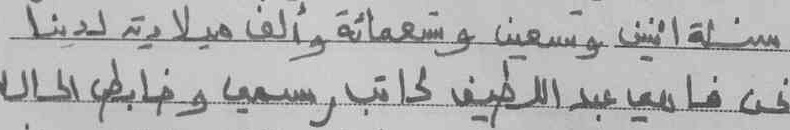 سنة اثنين وتسعين وتسعمائة وألف ميلادية لدينا
نحن فا عبد اللطيف كاتب رسمي وضابط الحالة